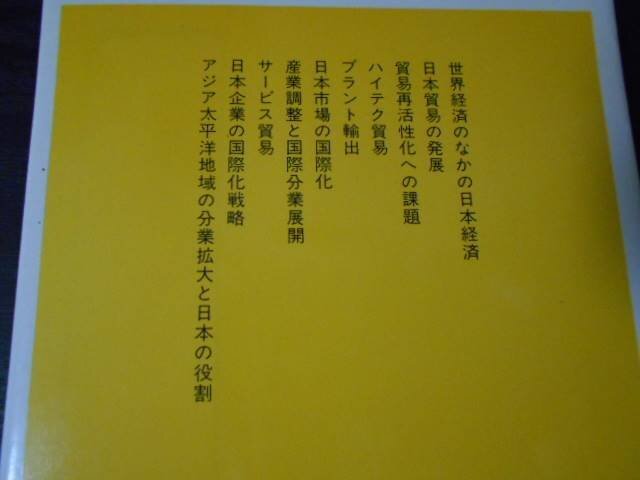 世界経済のなかの日本経済
日本貿易の発展
貿易再活性化への課題
ハイテク貿易
プラント輸出
日本市場の国際化
産業調整と国際分業展開
サービス貿易
日本企業の国際化戦略
アジア太平洋地域の分業拡大と日本の役割